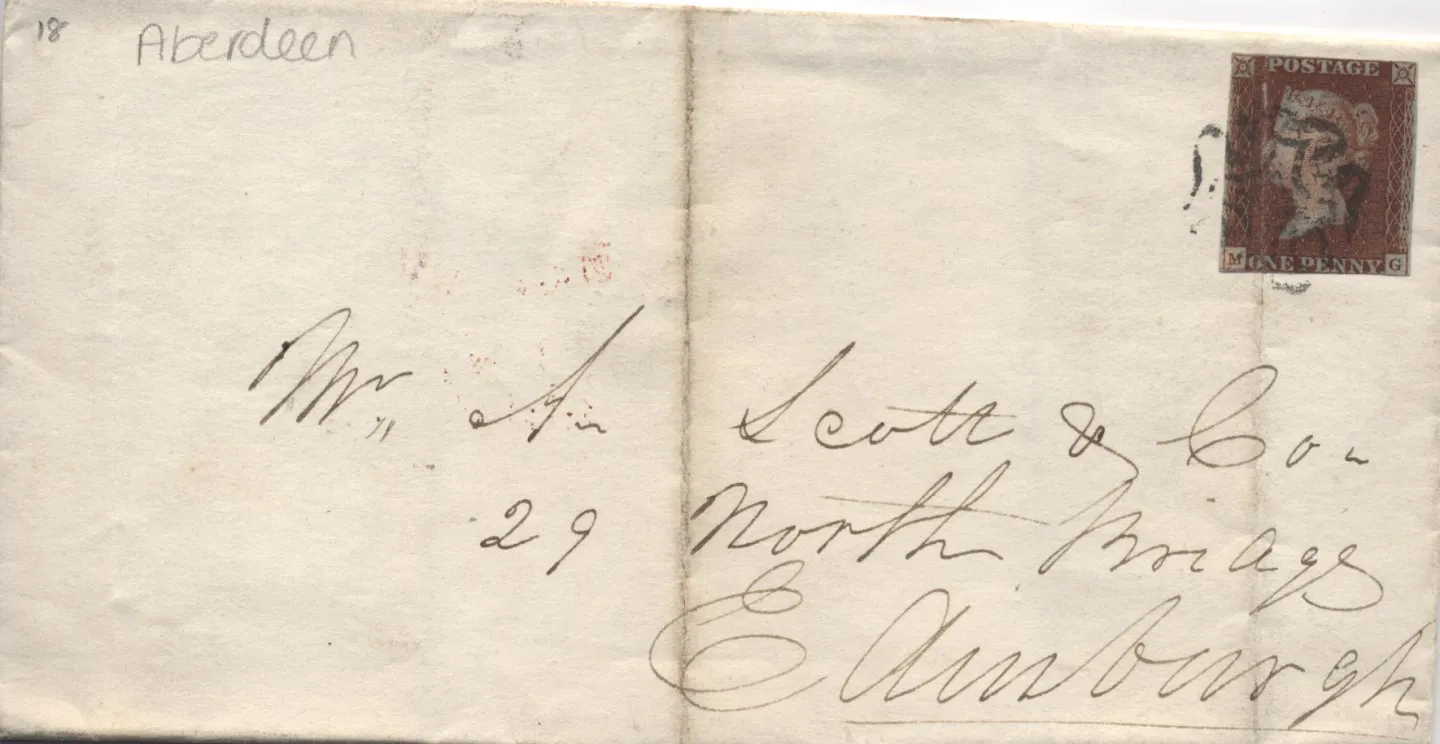 18
Aberdeen
POSTAGE
M ONE PENNY G
Mr,, A Scott & Co
29 North Bridge
Edinburgh